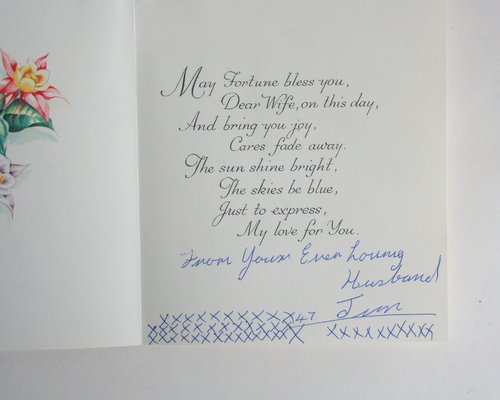 May Fortune bless you,
Dear Wife, on this day,
And bring you joy,
Cares fade away.
The sun shine bright,
The skies be blue,
Just to express,
My love for You.
From Your Ever Loving
Husband
Jim
XXXXXXXXXX 47
XXXXXXXXXXXXXX XXXXXXXXX